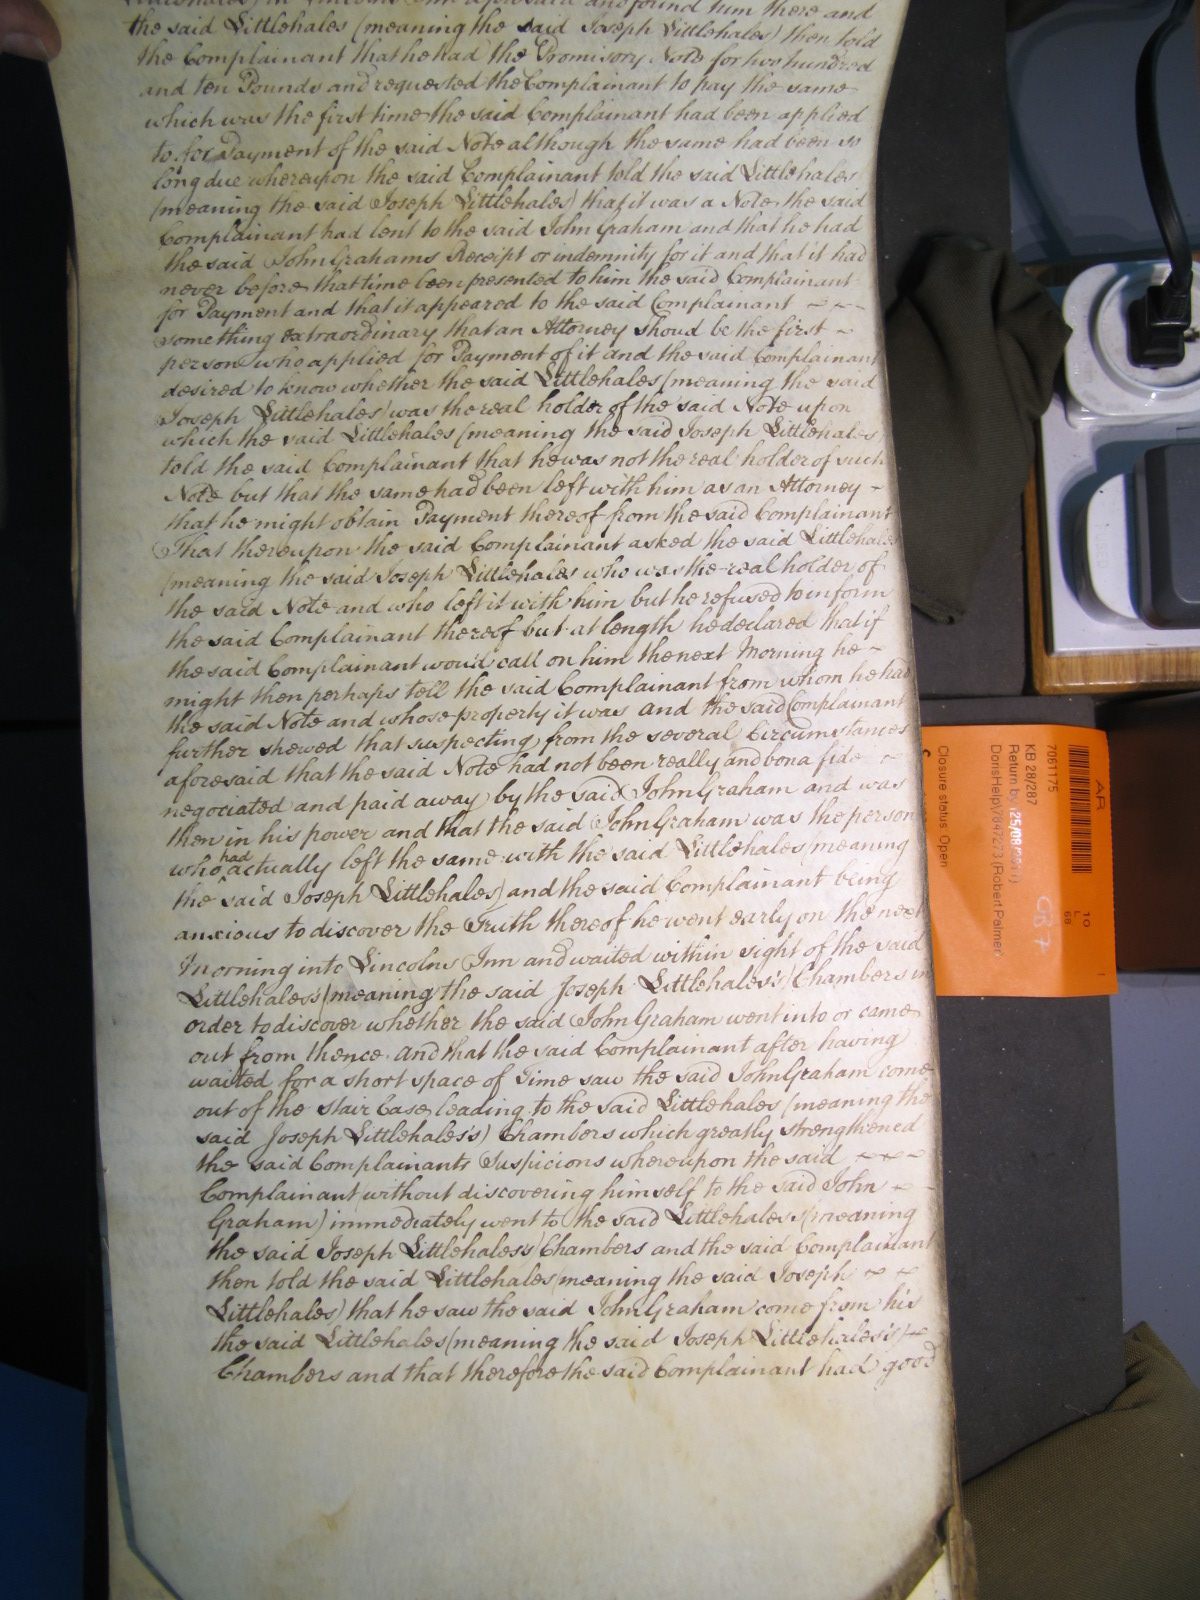 Littlehales) in Lincolns Inn aforesaid and found him there and
the said Littlehales (meaning the said Joseph Littlehales) then told
the Complainant that he had the Promisory Note for two hundred
and ten Pounds and requested the Complainant to pay the same
which was the first time the said Complainant had been applied
to for Payment of the said Note although the same had been so
long due whereupon the said Complainant told the said Littlehales
(meaning the said Joseph Littlehales) that it was a Note the said
Complainant had lent to the said John Graham and that he had
the said John Grahams Receipt or indemnity for it and that it had
never before that time been presented to him the said Complainant
for Payment and that it appeared to the said Complainant
something extraordinary that an Attorney shoud be the first
person who applied for Payment of it and the said Complainant
desired to know whether the said Littlehales (meaning the said
Joseph Littlehales) was the real holder of the said Note upon
which the said Littlehales (meaning the said Joseph Littlehales)
told the said Complainant that he was not the real holder of such
Note but that the same had been left with him as an Attorney
that he might obtain Payment thereof from the said Complainant
That thereupon the said Complainant asked the said Littlehales
(meaning the said Joseph Littlehales who was the real holder of
the said Note and who left it with him but he refused to inform
the said Complainant thereof but at length he declared that if
the said Complainant wou'd call on him the next Morning he
might then perhaps tell the said Complainant from whom he had
the said Note and whose property it was and the said Complainant
further shewed that suspecting from the several Circumstances
aforesaid that the said Note had not been really and bona fide
negociated and paid away by the said John Graham and was
then in his power and that the said John Graham was the person
who had actually left the same with the said Littlehales (meaning
the said Joseph Littlehales) and the said Complainant being
anxious to discover the Truth thereof he went early on the next
Morning into Lincolns Inn and waited within sight of the said
Littlehales's (meaning the said Joseph Littlehales's) Chambers in
order to discover whether the said John Graham went into or came
out from thence and that the said Complainant after having
waited for a short space of Time saw the said John Graham come
out of the Stair Case leading to the said Littlehales (meaning the
said Joseph Littlehales's) Chambers which greatly strengthened
the said Complainants Suspicions whereupon the said
Complainant (without discovering himself to the said John
Graham) immediately went to the said Littlehales's (meaning
the said Joseph Littlehales's) Chambers and the said Complainant
then told the said Littlehales (meaning the said Joseph
Littlehales) that he saw the said John Graham come from his
the said Littlehales (meaning the said Joseph Littlehales's)
Chambers and that therefore the said Complainant had good
AR
7061175
KB 28/287
Return by (25/08/2011)
DorisHelp\7847273 (Robert Palmer)
Closure status: Open
10
L
68